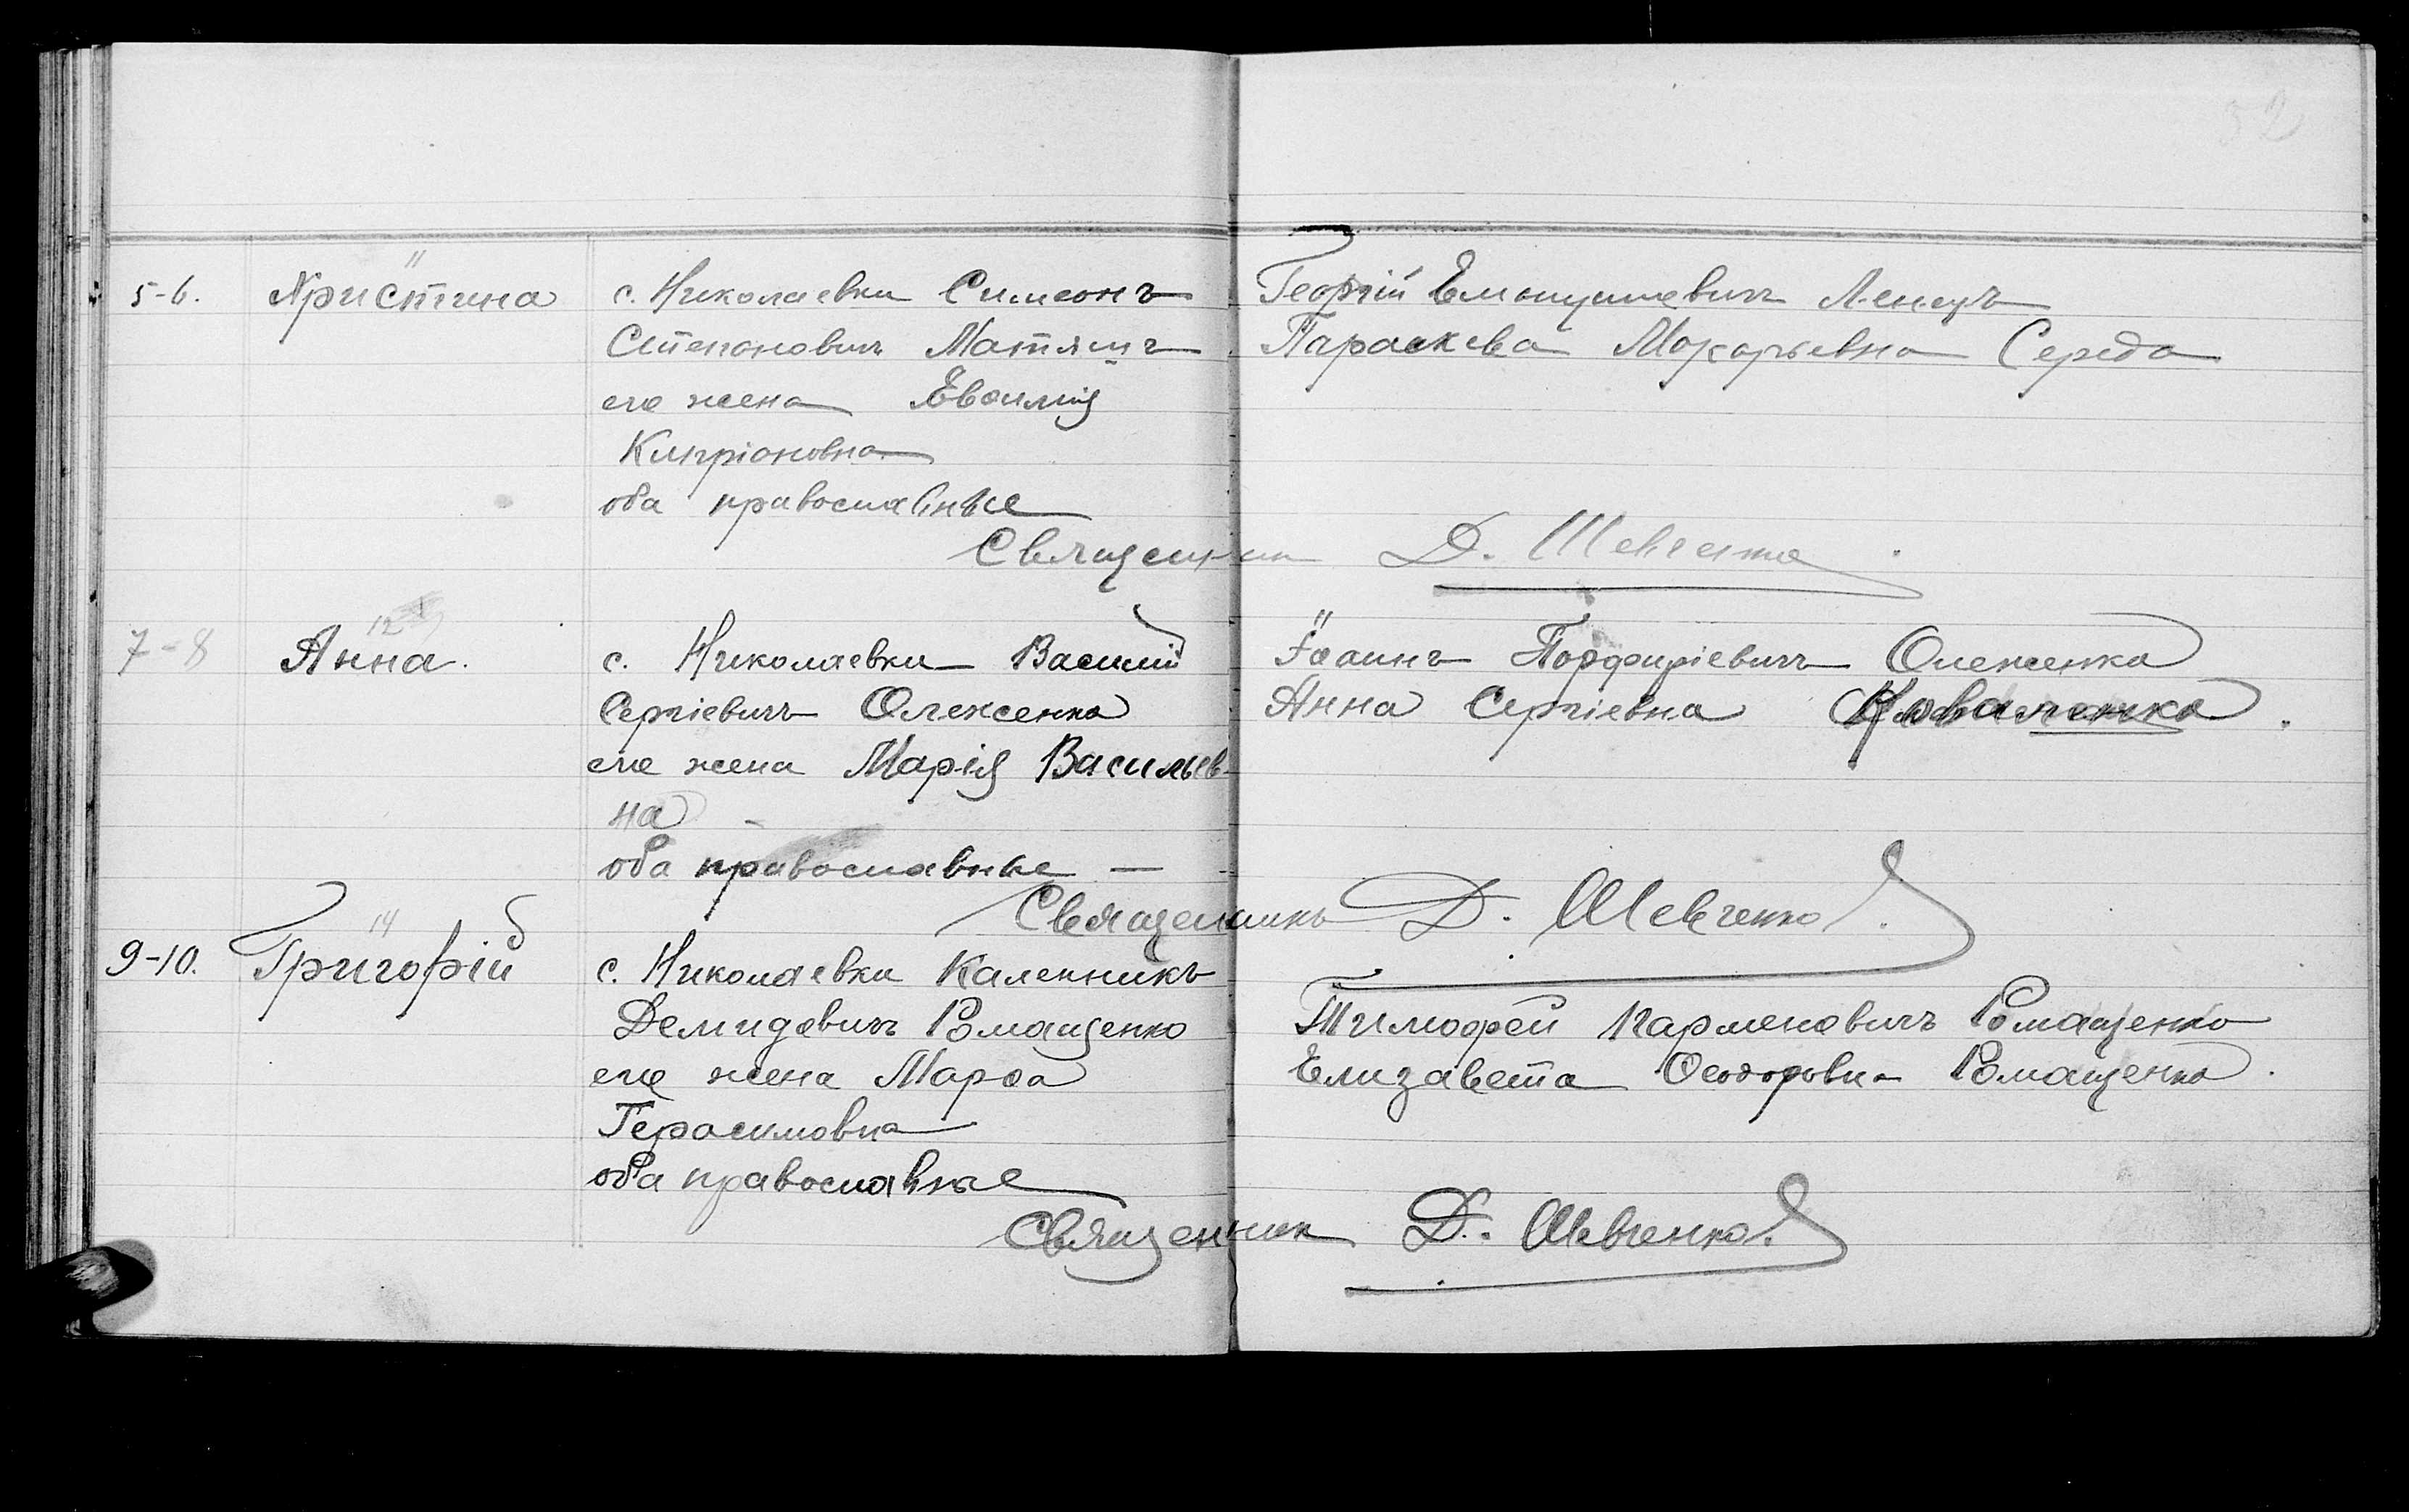 32
11
5-6. Христина с. Николаевки Симеонъ
Степановичъ Матяшъ
его жена Евѳимія
Кипріановна
оба православные
Георгій Георгій
Параскева Макарьевна Середа
Священник Д. Шевченко
12
7-8 Анна. с. Николаевки Василій
Сергіевичъ Олексенко
его жена Марія Васильев-
на
оба православные —
Іоаннъ Порфиріевичъ Олексенко
Анна Сергіевна Коваленко.
Священникъ Д. Шевченко
14
9-10. Григорій с. Николаевки Каленникъ
Демидовичъ Ромащенко
его жена Марѳа
Герасимовна
оба православные
Тимофей Парменовичъ Ромащенко
Елизавета Ѳеодоровна Ромащенко.
Священник Д. Шевченко.